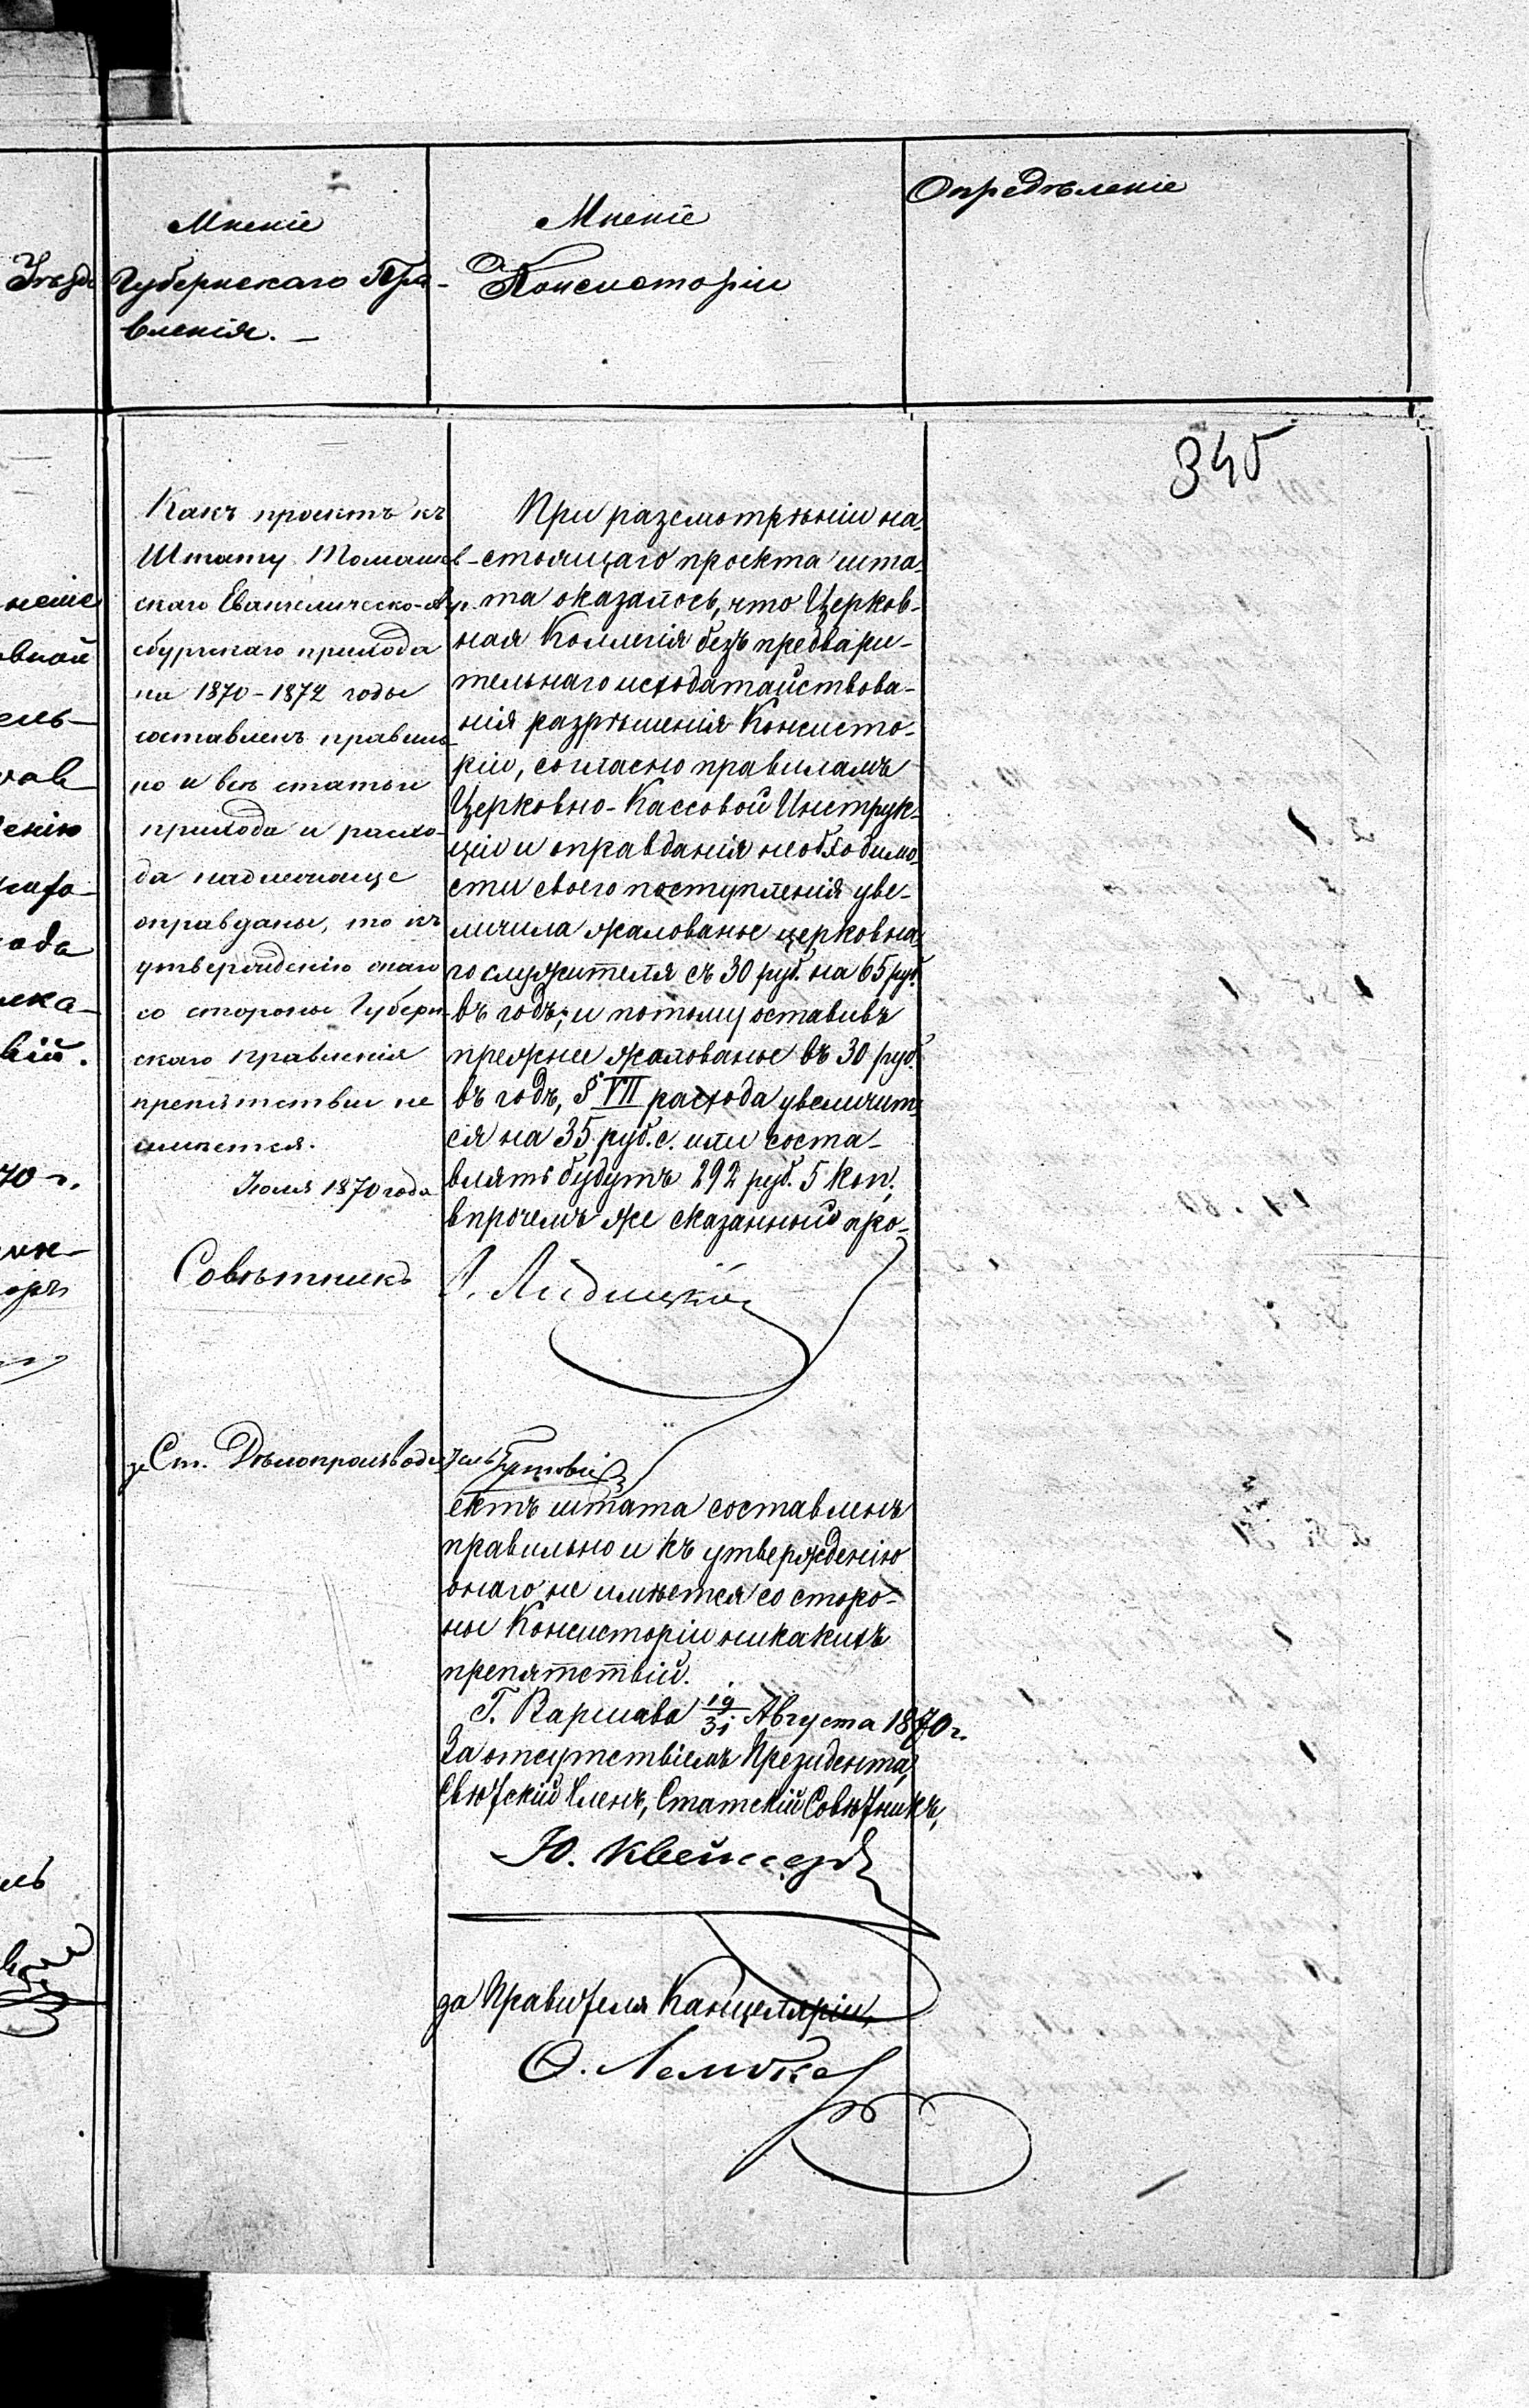 Мнение
Губернскаго Пра-
вленія. —
Мнение
Консисторіи
Определеніе
345
Какъ проектъ къ
Штату Томашев-
скаго Евангелическо-Ауг-
сбургскаго прихода
на 1870-1872 годы
составленъ правиль-
но и все статьи
прихода и расхо-
да надлежаще
оправданы, то къ
утвержденію онаго
со стороны Губерн-
скаго Правленія
препятствія не
имеется.
Іюля 1870 года
Советникъ
Ст. Делопроизводитель
При разсмотреніи на-
стоящаго проекта шта-
та оказалось, что Церков-
ная Коллегія безъ предвари-
тельнаго исходатайствова-
нія разрешенія Консисто-
ріи, согласно правиламъ
Церковно-Кассовой Инструк-
ціи и оправданія необходимо-
сти своего поступленія уве-
личила жалованье церковна-
го служителя съ 30 руб. на 65 руб.
въ годъ; и потому оставивъ
прежнее жалованье въ 30 руб.
въ годъ, § VII расхода увеличит-
ся на 35 руб. с. или соста-
влять будутъ 292 руб. 5 коп.,
впрочемъ же сказанный про-
ектъ штата составленъ
правильно и къ утвержденію
онаго не имеется со сторо-
ны Консисторіи никакихъ
препятствій.
Г. Варшава 19/31 Августа 1870 г.
За отсутствіемъ Президента,
Светскій Членъ, Статскій Советникъ,
Ю.
за Правителя Канцеляріи,